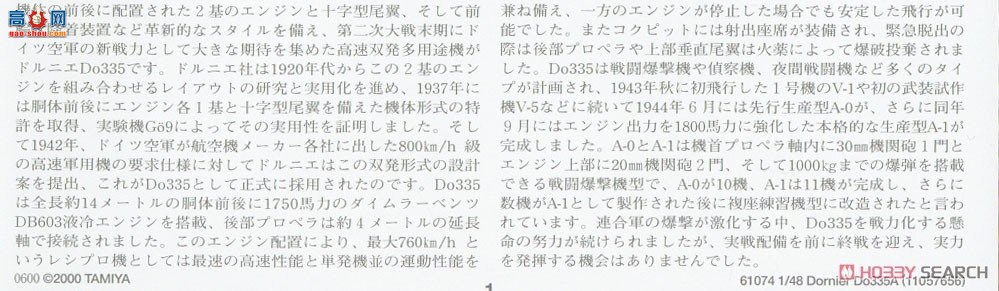 機体の前後に配置された2基のエンジンと十字型尾翼、そして前
着装置など革新的なスタイルを備え、第二次大戦末期にド
イツ空軍の新戦力として大きな期待を集めた高速双発多用途機が
ドルニエDo335です。ドルニエ社は1920年代からこの2基のエン
ジンを組み合わせるレイアウトの研究と実用化を進め、1937年に
は胴体前後にエンジン各1基と十字型尾翼を備えた機体形式の特
許を取得、実験機Gö9によってその実用性を証明しました。そし
て1942年、ドイツ空軍が航空機メーカー各社に出した800km/h 級
の高速軍用機の要求仕様に対してドルニエはこの双発形式の設計
案を提出、これがDo335として正式に採用されたのです。Do335
は全長約14メートルの胴体前後に1750馬力のダイムラーベンツ
DB603液冷エンジンを搭載、後部プロペラは約4メートルの延長
軸で接続されました。このエンジン配置により、最大760km/h と
いうレシプロ機としては最速の高速性能と単発機並の運動性能を
0600 ©2000 TAMIYA
兼ね備え、一方のエンジンが停止した場合でも安定した飛行が可
能でした。またコクピットには射出座席が装備され、緊急脱出の
際は後部プロペラや上部垂直尾翼は火薬によって爆破投棄されま
した。Do335は戦闘爆撃機や偵察機、夜間戦闘機など多くのタイ
プが計画され、1943年秋に初飛行した1号機のV-1や初の武装試作
機V-5などに続いて1944年6月には先行生産型A-0が、さらに同年
9月にはエンジン出力を1800馬力に強化した本格的な生産型A-1が
完成しました。A-0とA-1は機首プロペラ軸内に30㎜機関砲1門と
エンジン上部に20㎜機関砲2門、そして1000kgまでの爆弾を搭載
できる戦闘爆撃機型で、A-0が10機、A-1は11機が完成し、さらに
数機がA-1として製作された後に複座練習機型に改造されたと言わ
れています。連合軍の爆撃が激化する中、Do335を戦力化する懸
命の努力が続けられましたが、実戦配備を前に終戦を迎え、実力
を発揮する機会はありませんでした。
61074 1/48 Dornier Do335A (11057656)
1
高手
gao-shou.com
HOBBY SEARCH